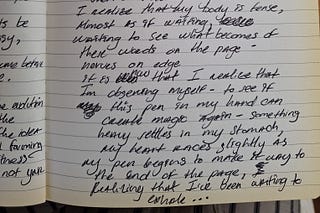 to be
I realize that my body is tense,
Almost as if waiting,
waiting to see what becomes of
these words on the page -
nerves on edge
it is now that I realize that
I'm observing myself - to see if
this pen in my hand can
create magic again - something
heavy settles in my stomach,
my heart races slightly as
my pen begins to make it way to
the end of the page,
Realizing that I've been waiting to
exhale...
before
audition
the
the idea
favoring
not your